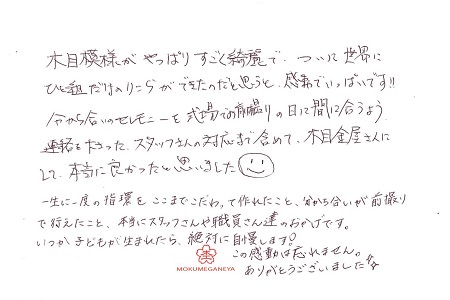 木目模様がやっぱりすごく綺麗で、ついに世界に
ひと組だけのりこらができたのだと思うと、感謝でいっぱいです!!
分かち合いのセレモニーを式場での前撮りの日に間に合うよう
連絡を下さった、スタッフさんの対応まで含めて、木目金屋さんに
して、本当に良かったと思いました
一生に一度の指環をここまでこだわって作れたこと、分かち合いが前撮り
で行えたこと、本当にスタッフさんや職員さん達のおかげです。
いつか子どもが生まれたら、絶対に自慢します!
この感動は忘れません。
ありがとうございました
MOKUMEGANEYA